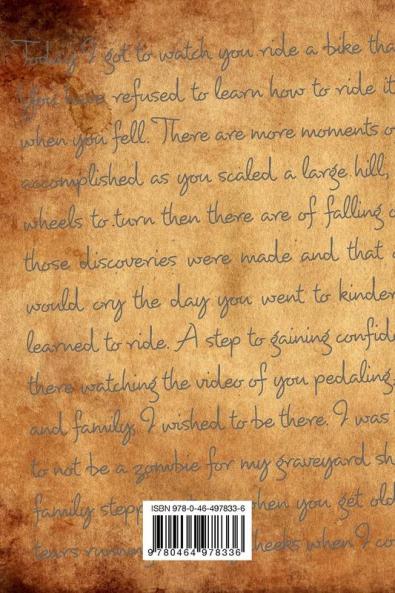 Today I got to watch you ride a bike tha
You have refused to learn how to ride it
when you fell. There are more moments o
accomplished as you scaled a large hill,
wheels to turn then there are of falling o
those discoveries were made and that
would cry the day you went to kinder
learned to ride. A step to gaining confid
there watching the video of you pedaling
and family, I wished to be there. I was
to not be a zombie for my graveyard sh
family stepp hen you get old
tears running heeks when I co
ISBN 978-0-46-497833-6
9 780464 978336